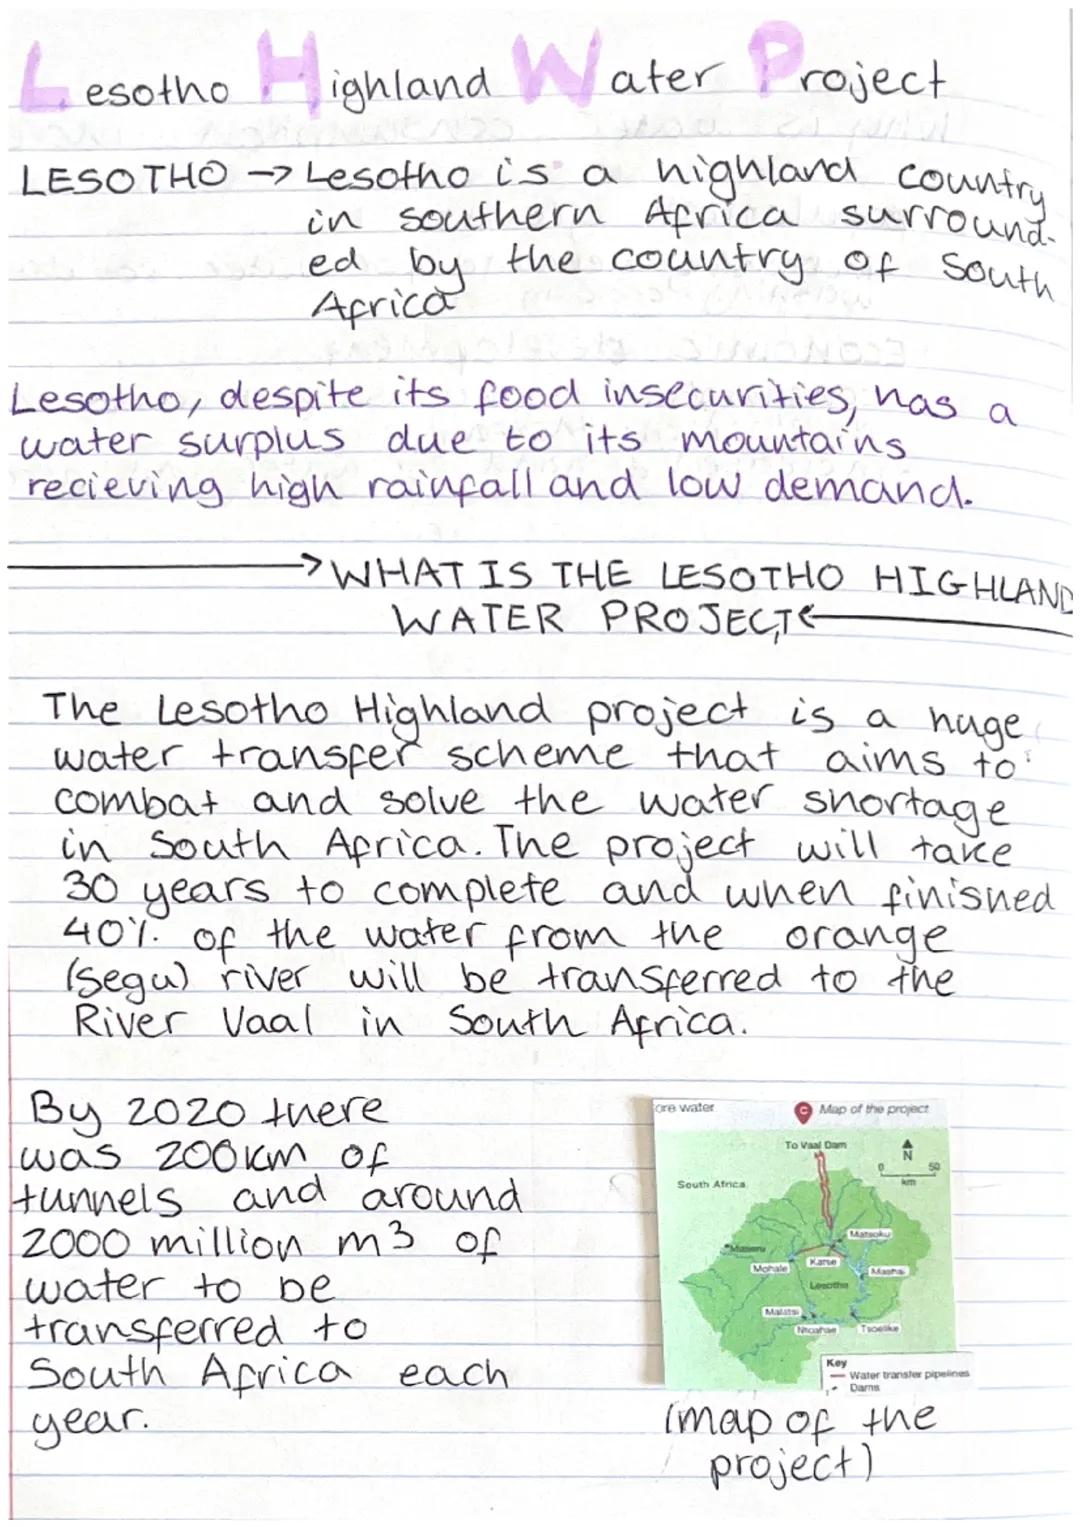 Lesotho Highland Water Project
LESOTHO → Lesotho is a highland country
in southern Africa surround-
ed by the country of South
Africa
Lesotho, despite its food insecurities, has a
water surplus due to its mountains
recieving high rainfall and low demand.
→ WHAT IS THE LESOTHO HIGHLAND
WATER PROJECT ←
The Lesotho Highland project is a huge
water transfer scheme that aims to
combat and solve the water shortage
in South Africa. The project will take
30 years to complete and when finished
40% of the water from the orange
(segu) river will be transferred to the
River Vaal in South Africa.
By 2020 there
was 200km of
tunnels and around
2000 million m3 of
water to be
transferred to
South Africa each
year.
ore water
C Map of the project
To Vaal Dam
N
0 50
km
South Africa
Matsoku
Maseru
Katse
Mohale
Mashai
Lesotho
Malatsi
Ntoahae
Tsoelike
Key
Water transfer pipelines
Dams
(map of the
project)